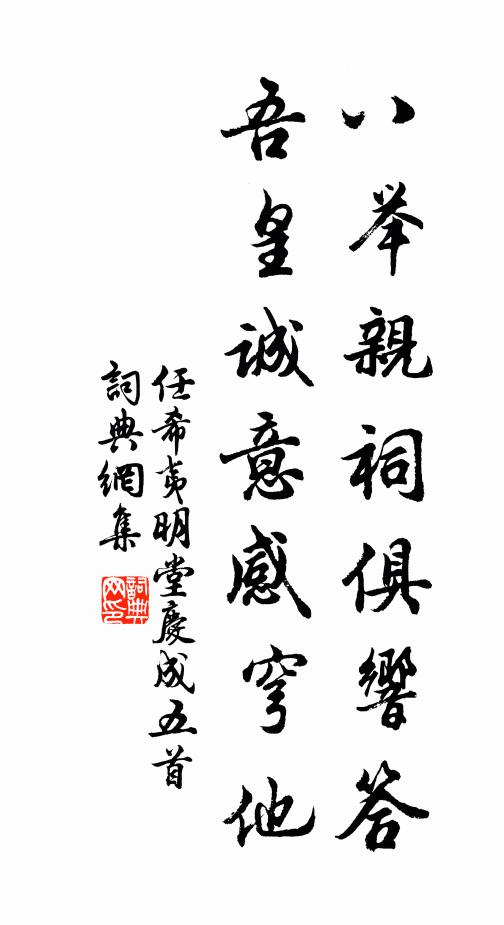 八举親祠俱響答
吾皇誠意感穹他
任希夷明堂慶成五首
詞典網集
詞典网印